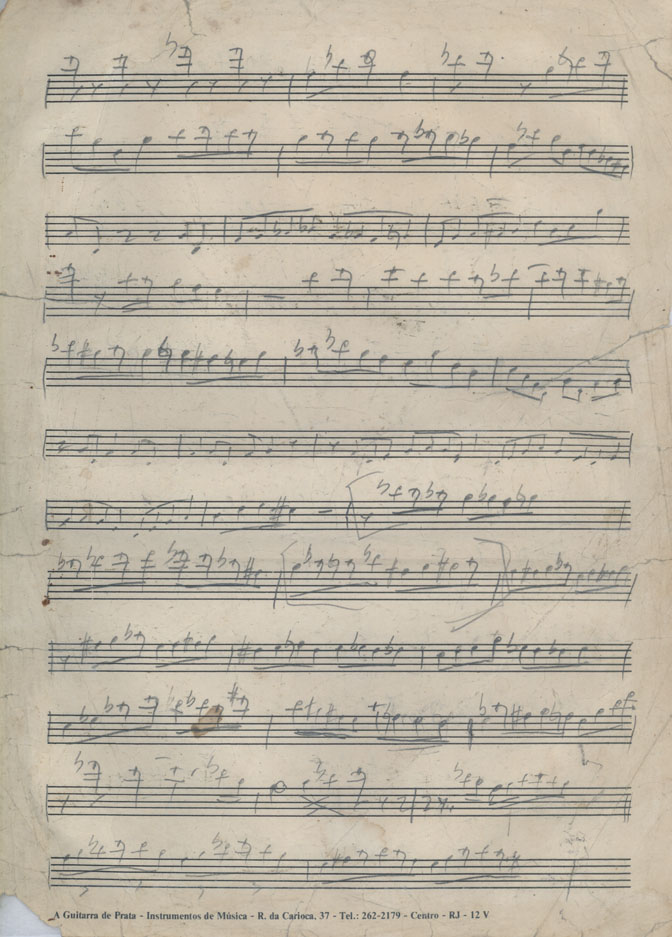 A Guitarra de Prata - Instrumentos de Música - R. da Carioca, 37 - Tel.: 262-2179 - Centro - RJ - 12 V